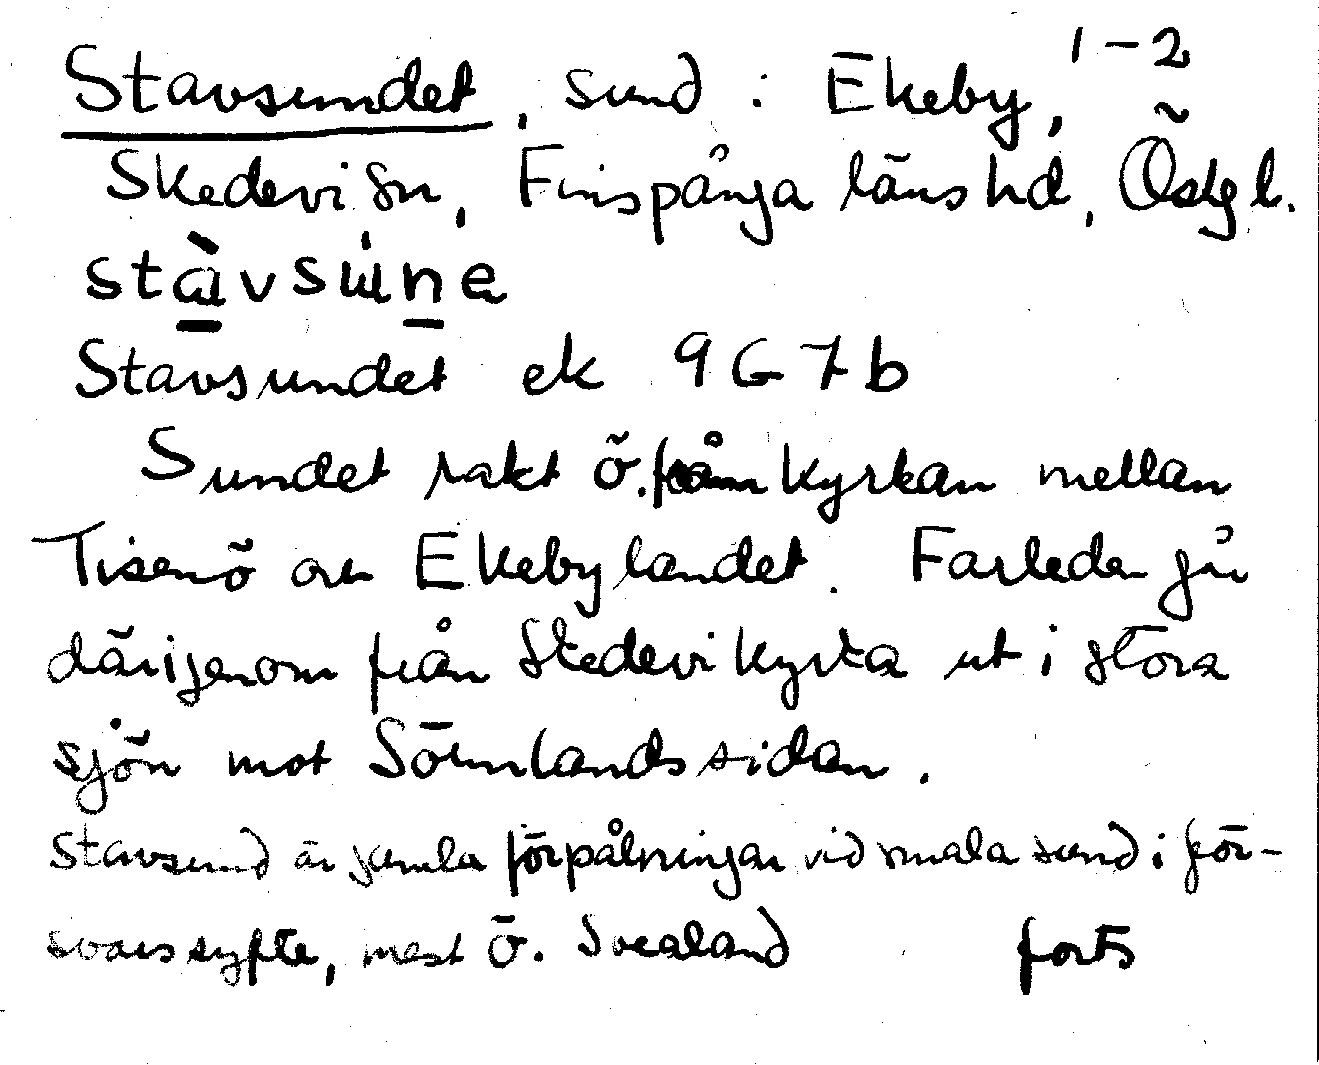 Stavsundet, sund : Ekeby, 1-2
Skedevi sn, Finspånga läns hd, Östgl.
stàvsúne
Stavsundet ek 9G7b
Sundet rakt ö. från kyrkan mellan
Tisenö och Ekebylandet. Farleden går
därigenom från Skedevi kyrka ut i stora
sjön mot Sörmlandssidan.
Stavsund är gamla förpålningar vid smala sund i för-
svarssyfte, mest ö. Svealand forts